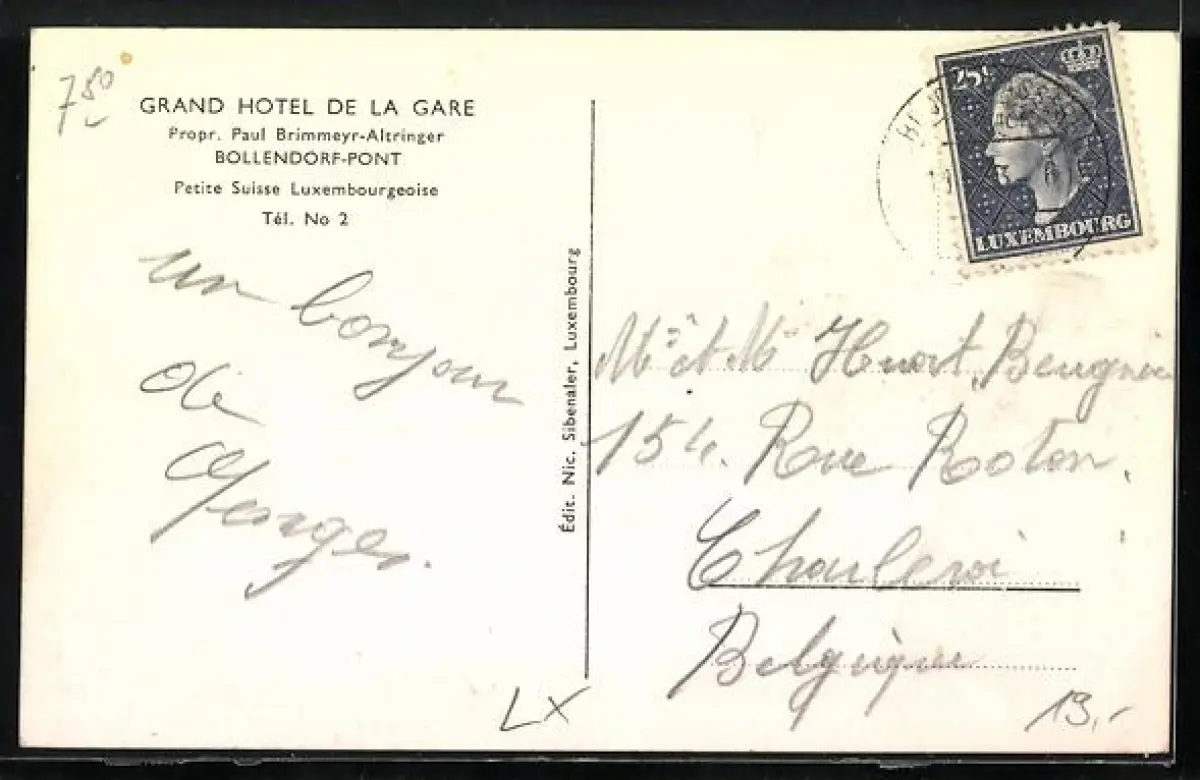 7 50
GRAND HOTEL DE LA GARE
Propr. Paul Brimmeyr-Altringer
BOLLENDORF-PONT
Petite Suisse Luxembourgeoise
Tél. No 2
un bonjour
de
Georges.
Édit. Nic. Sibenaler, Luxembourg
25c
LUXEMBOURG
Mr et Me Huart
154. Rue Roton.
Charleroi
Belgique
LX
19.-